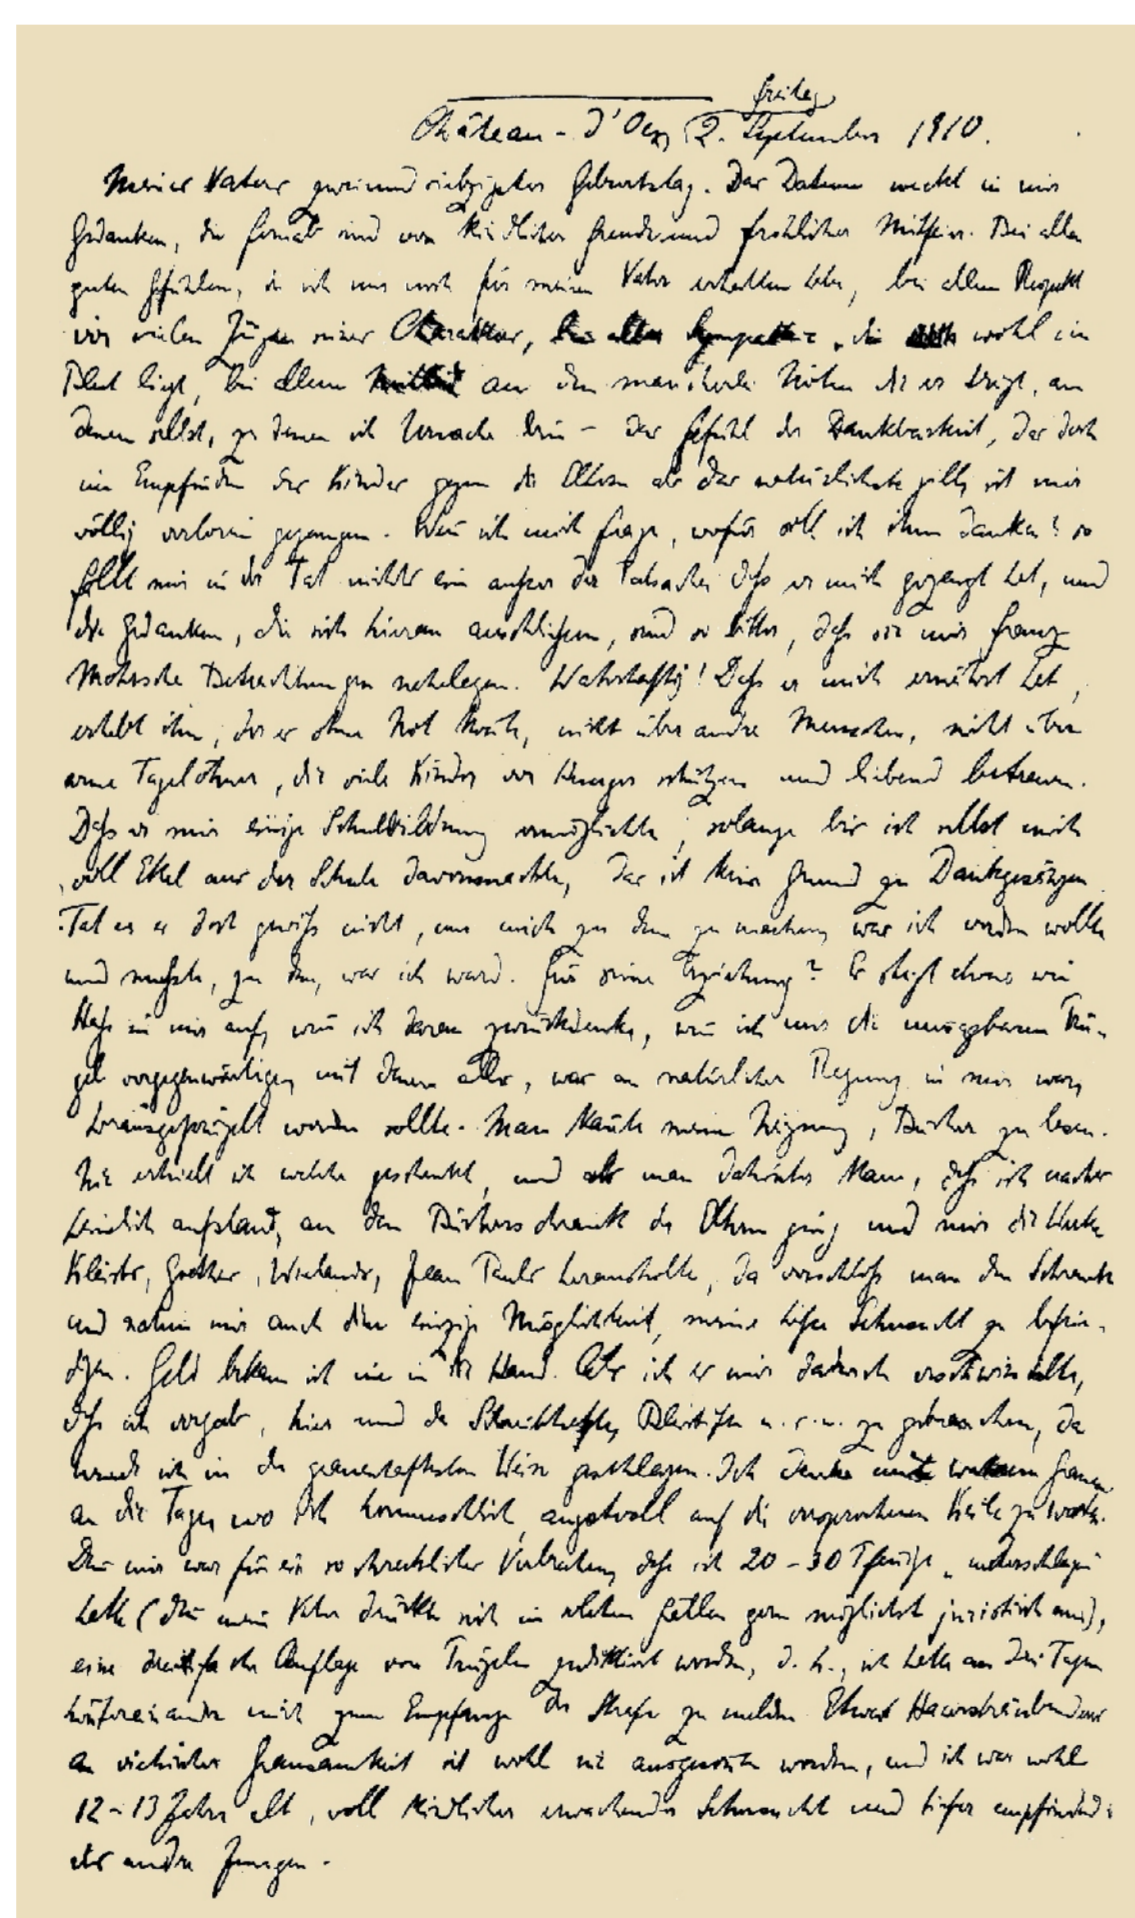 Freitag
Château-d'Oex, 2. September 1910.
Meines Vaters zweiundsiebzigster Geburtstag. Das Datum weckt in mir
Gedanken, die fernab sind von kindlicher Freude und fröhlicher Mitfeier. Bei allen
guten Gefühlen, die ich mir noch für meinen Vater erhalten habe, bei allem Respekt
vor vielen Zügen seines Charakters, bei aller Sympathie, die wohl im
Blut liegt, bei allem Mitleid an den mancherlei Nöten die er trägt, an
denen selbst, zu denen ich Ursache bin – das Gefühl der Dankbarkeit, das doch
im Empfinden der Kinder gegen die Eltern als das natürlichste gilt, ist mir
völlig verloren gegangen. Wenn ich mich frage, wofür soll ich ihm danken? so
fällt mir in der Tat nichts ein außer der Tatsache, dass er mich gezeugt hat, und
die Gedanken, die sich hieran anschließen, sind so bitter, dass sie mir Franz
Mohrsche Betrachtungen nahelegen. Wahrhaftig! Dass er mich ernährt hat,
erhebt ihn, der es ohne Not konnte, nicht über andre Menschen, nicht über
arme Tagelöhner, die viele Kinder vor Hunger schützen und liebend betreuen.
Dass er mir einige Schulbildung ermöglichte, solange bis ich selbst mich
voll Ekel aus der Schule davonmachte, das ist kein Grund zu Dankgesängen.
Tat er es doch gewiß nicht, um mich zu dem zu machen, was ich werden wollte
und musste, zu dem, was ich ward. Für seine Erziehung? Es steigt etwas wie
Hass in mir auf, wenn ich daran zurückdenke, wenn ich mir die unsagbaren Prü-
gel vergegenwärtige, mit denen alles, was an natürlicher Regung in mir war,
herausgeprügelt werden sollte. Man kannte meine Neigung, Bücher zu lesen.
Nie erhielt ich welche geschenkt, und als man dahinter kam, dass ich nachts
heimlich aufstand, an den Bücherschrank der Eltern ging und mir die Werke
Kleists, Goethes, Wielands, Jean Pauls herausholte, da verschloß man den Schrank
und nahm mir auch diese einzige Möglichkeit, meine tiefe Sehnsucht zu befrie-
digen. Geld bekam ich nie in die Hand. Als ich es mir dadurch verschwindelte,
dass ich vorgab, hier und da Schreibhefte, Bleistifte u. s. w. zu gebrauchen, da
wurde ich in der grauenhaftesten Weise geschlagen. Ich denke mit wahrem Grauen
an die Tage, wo ich angstvoll auf die versprochenen Keile zu warten.
Denn mir war für ein so schreckliches Verbrechen, dass ich 20–30 Pfennige „unterschlagen"
hatte (denn mein Vater drückte sich in solchen Fällen gern möglichst juristisch aus),
eine dreifache Auflage von Prügeln zudiktiert worden, d. h., ich hatte an drei Tagen
hintereinander mich zum Empfange der Strafe zu melden. Etwas Haarsträubenderes
an viehischer Grausamkeit ist wohl nie ausgesonnen worden, und ich war wohl
12–13 Jahre alt, voll kindlicher erwachender Sehnsucht und tiefer empfindend
als andre Jungen.